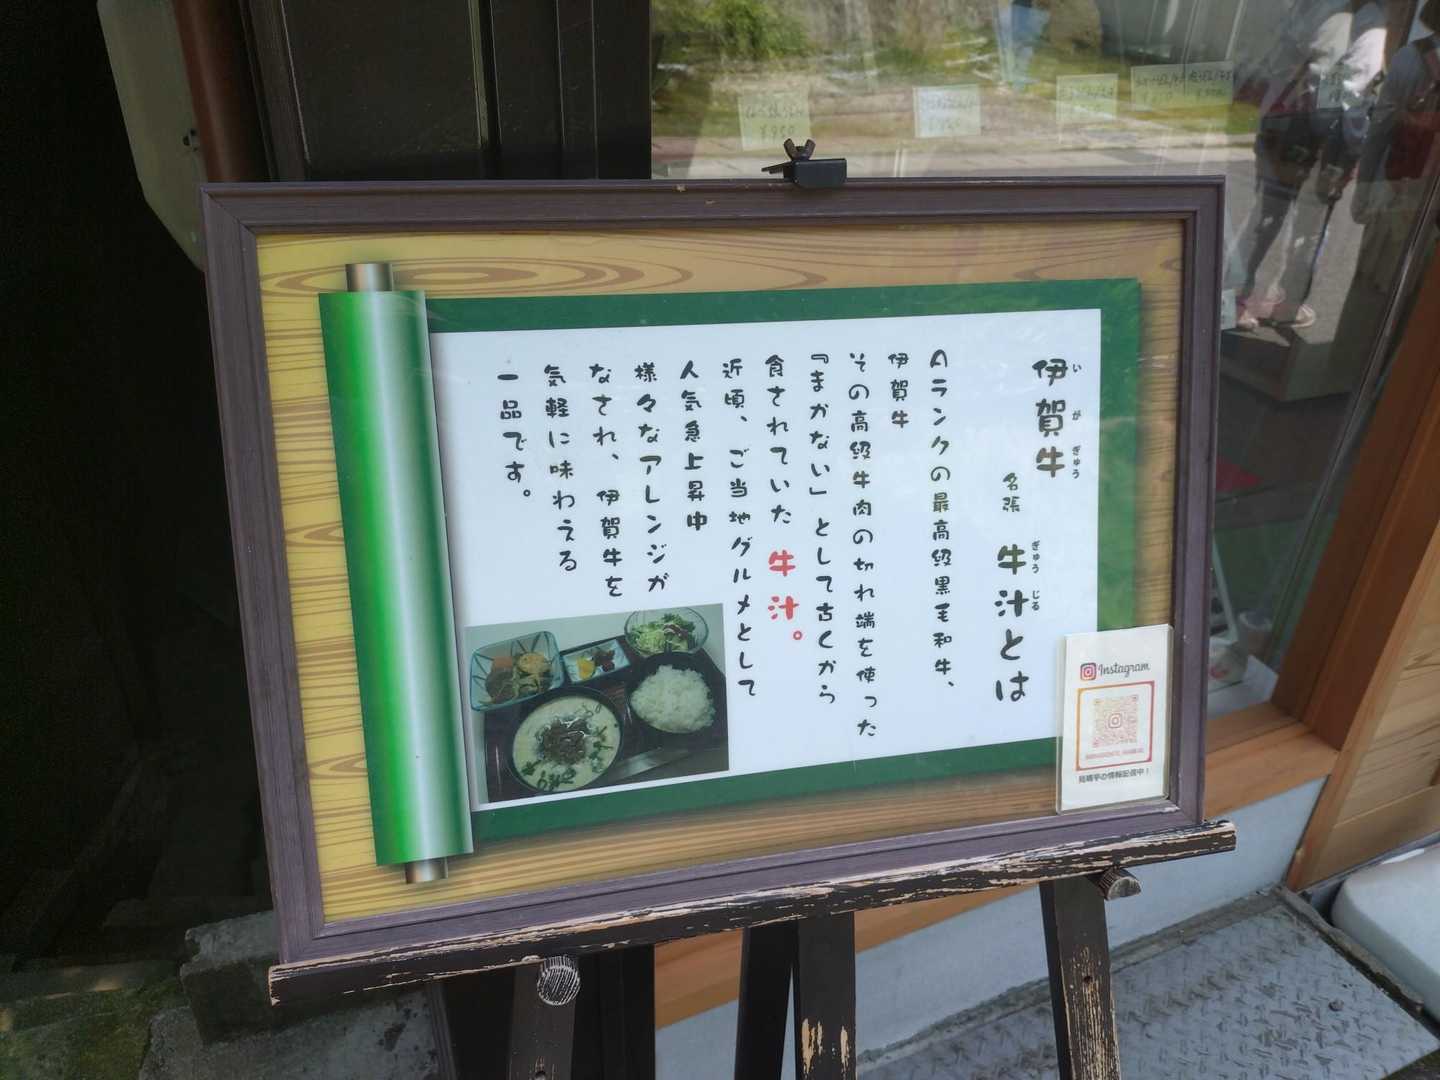 伊賀牛
名張 牛汁とは
Aランクの最高級黒毛和牛、
伊賀牛
その高級牛肉の切れ端を使った
『まかない」として古くから
食されていた 牛汁。
近頃、ご当地グルメとして
人気急上昇中
様々なアレンジが
なされ、伊賀牛を
気軽に味わえる
一品です。
い が ぎゅう
ぎゅう じる
Instagram
の情報配信中!